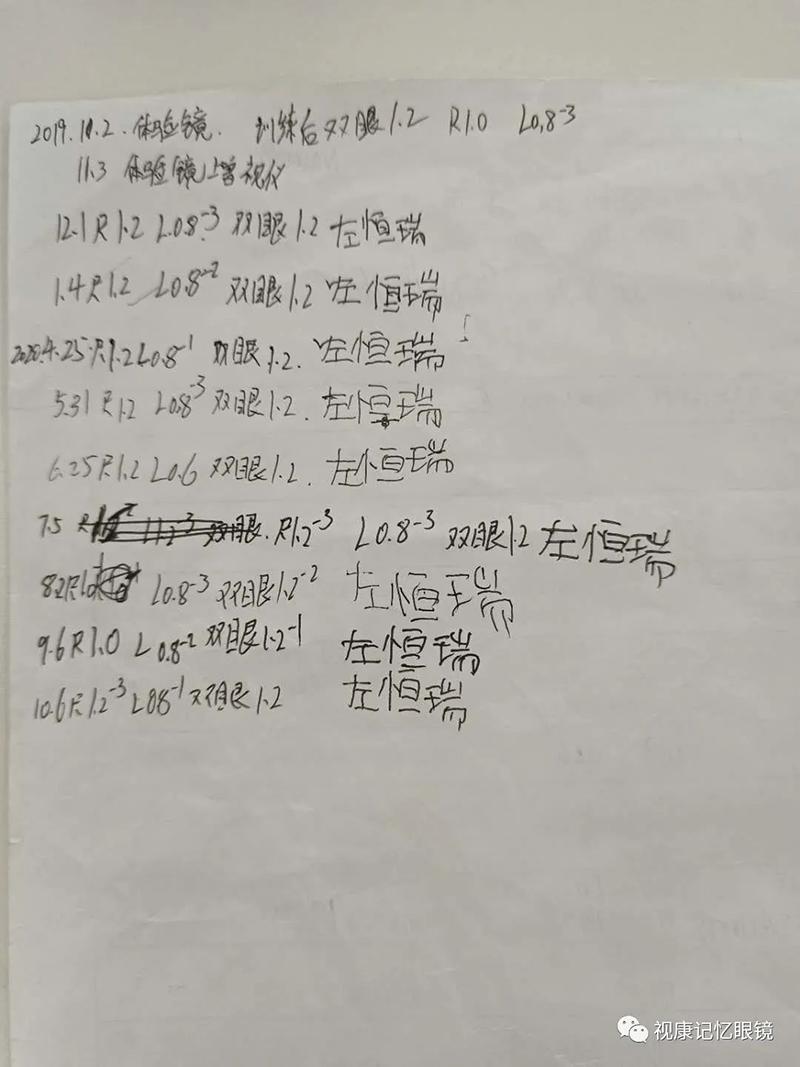 2019.11.2.体验镜. 训练后双眼1.2 R1.0 L0.8-3
11.3 体验镜上增视仪
12.1 R1.2 L0.8-3 双眼1.2 左恒瑞
1.4 R1.2 L0.8-2 双眼1.2 左恒瑞
2020.4.25 R1.2 L0.8-1 双眼1.2. 左恒瑞
5.31 R1.2 L0.8-3 双眼1.2. 左恒瑞
6.25 R1.2 L0.6 双眼1.2. 左恒瑞
7.5 R1.2-3 L0.8-3 双眼1.2 左恒瑞
8.2 L0.8-3 双眼1.2-2 左恒瑞
9.6 R1.0 L0.8-2 双眼1.2-1 左恒瑞
10.6 R1.2-3 L0.8-1 双眼1.2 左恒瑞
视康记忆眼镜